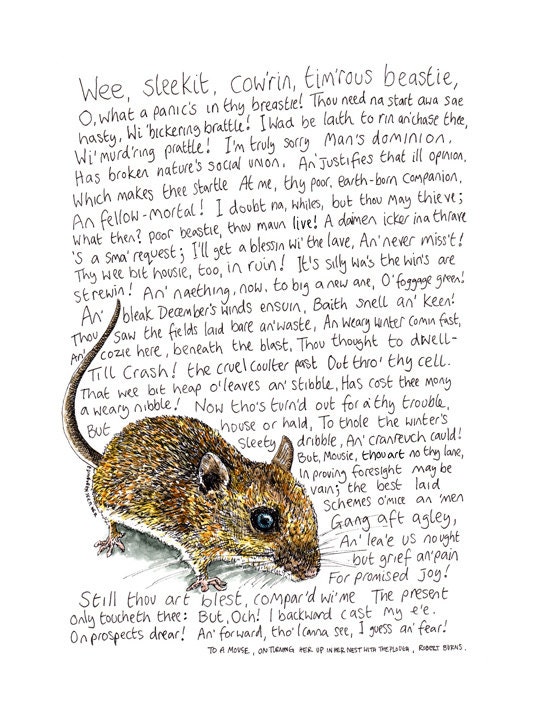 Wee, sleekit, cow'rin, tim'rous beastie,
O, what a panic's in thy breastie! Thou need na start awa sae
hasty, Wi' bickering brattle! I wad be laith to rin an' chase thee,
Wi' murd'ring prattle! I'm truly sorry Man's dominion,
Has broken nature's social union, An' justifies that ill opinion,
Which makes thee startle At me, thy poor, earth-born companion,
An fellow-mortal! I doubt na, whiles, but thou may thieve;
What then? poor beastie, thou maun live! A daimen icker in a thrave
'S a sma' request; I'll get a blessin wi' the lave, An' never miss't!
Thy wee bit housie, too, in ruin! It's silly wa's the win's are
strewin! An' naething, now, to big a new ane, O' foggage green!
An' bleak December's winds ensuin, Baith snell an' keen!
Thou saw the fields laid bare an' waste, An weary winter comin fast,
An' cozie here, beneath the blast, Thou thought to dwell-
Till crash! the cruel coulter past Out thro' thy cell.
That wee bit heap o' leaves an' stibble, Has cost thee mony
a weary nibble! Now tho's turn'd out for a' thy trouble,
But house or hald, To thole the winter's
Sleety dribble, An' cranreuch cauld!
But, Mousie, thou art no thy lane,
In proving foresight may be
vain; the best laid
Schemes o' mice an 'men
Gang aft agley,
An' lea'e us nought
but grief an' pain
For promised joy!
Still thou art blest, compar'd wi' me The present
only toucheth thee: But, Och! I backward cast my e'e.
On prospects drear! An' forward, tho' I canna see, I guess an' fear!
TO A MOUSE, ON TURNING HER UP IN HER NEST WITH THE PLOUGH, ROBERT BURNS.